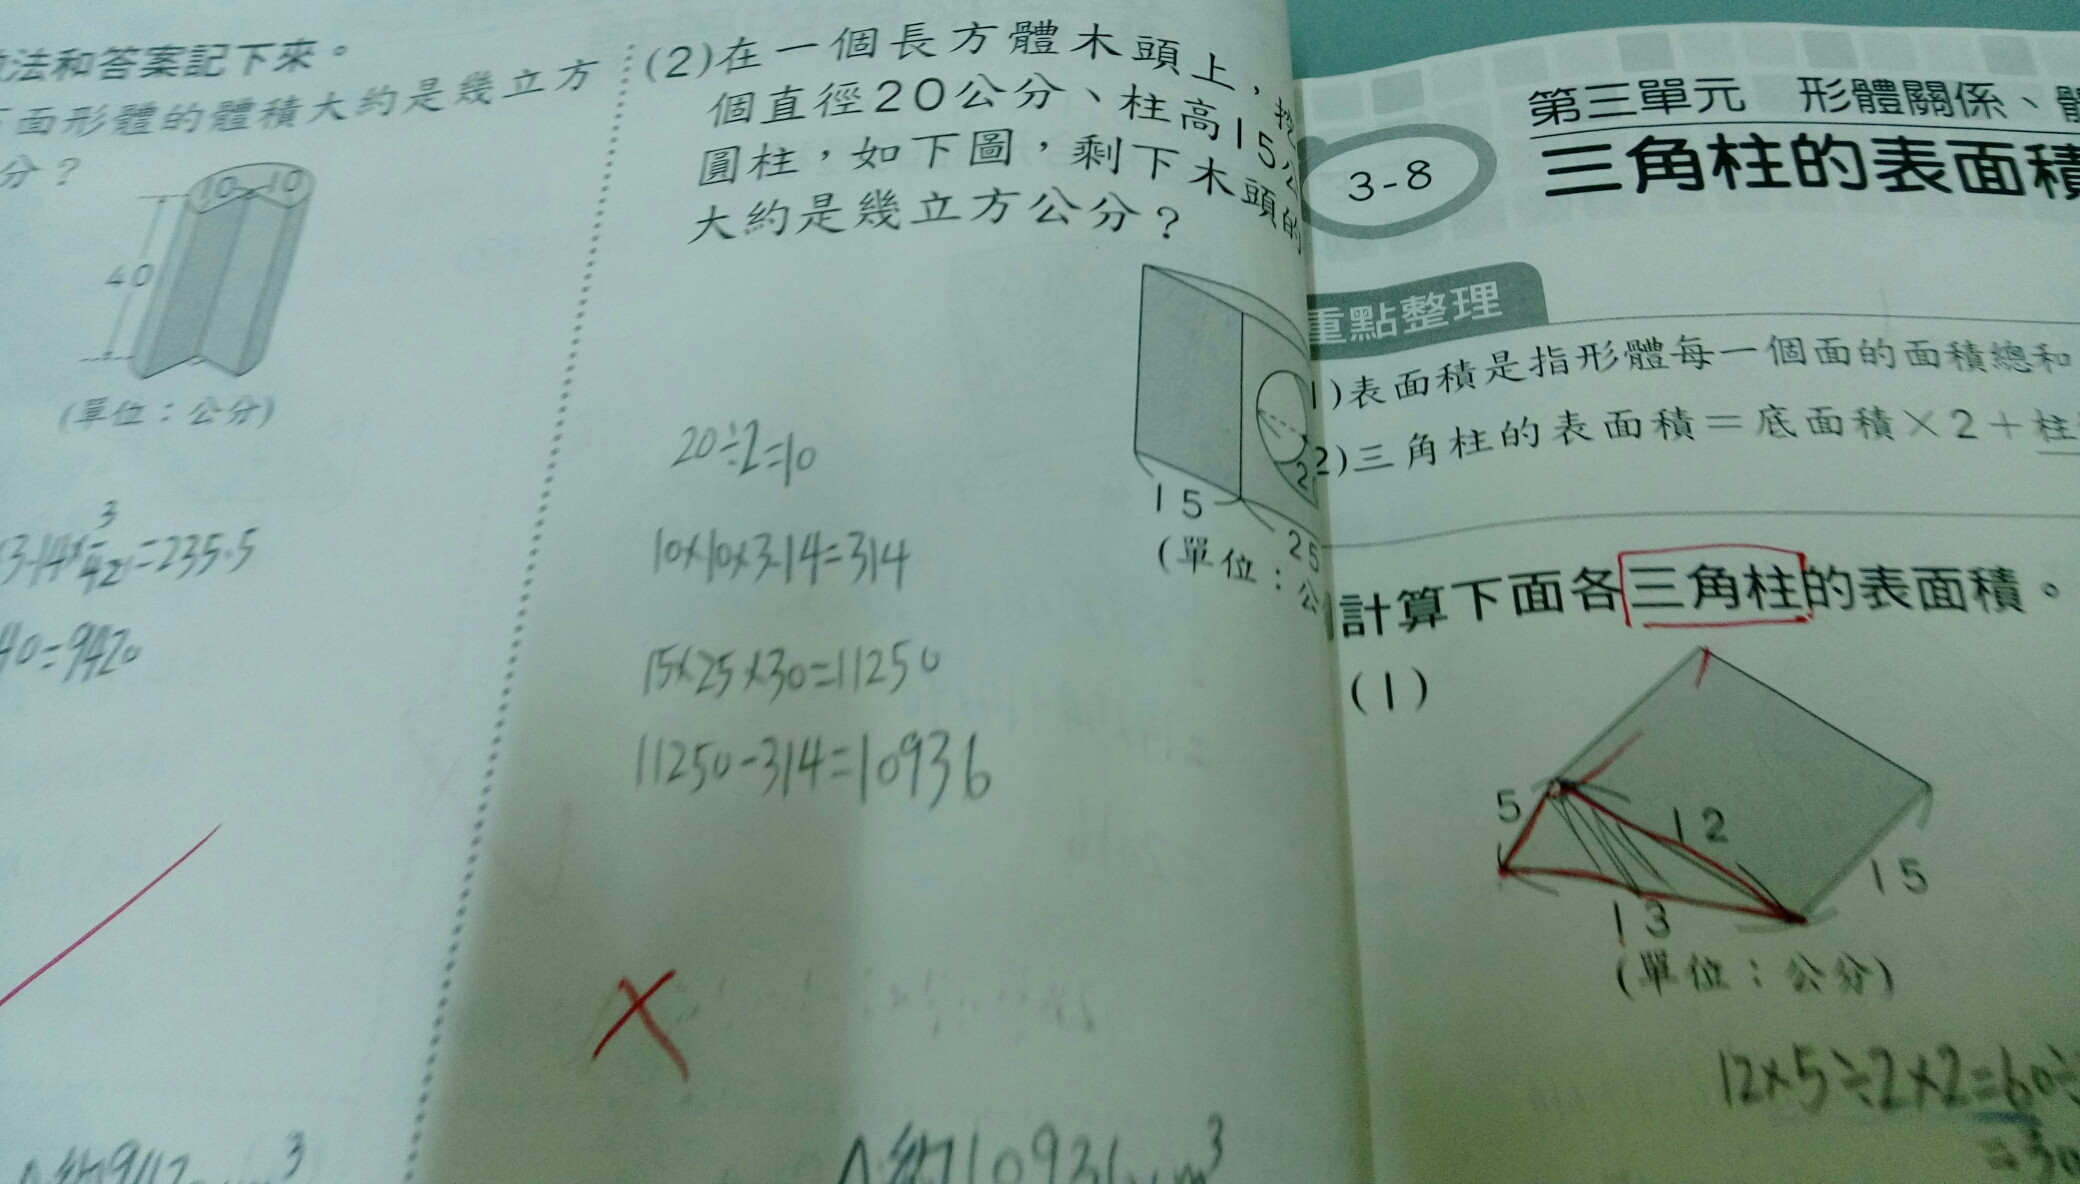 法和答案記下來。
下面形體的體積大約是幾立方
分?
10 10
40
(單位:公分)
=235.5
40=9420
(2)在一個長方體木頭上,挖
個直徑20公分、柱高15公
圓柱,如下圖,剩下木頭的
大約是幾立方公分?
15
25
(單位:公
20÷2=10
10×10×3.14=314
15×25×30=11250
11250-314=10936
第三單元 形體關係、
3-8
三角柱的表面積
重點整理
1)表面積是指形體每一個面的面積總和
2)三角柱的表面積=底面積×2+柱
計算下面各三角柱的表面積。
(1)
5
12
13
15
(單位:公分)
12×5÷2×2=60÷
=30